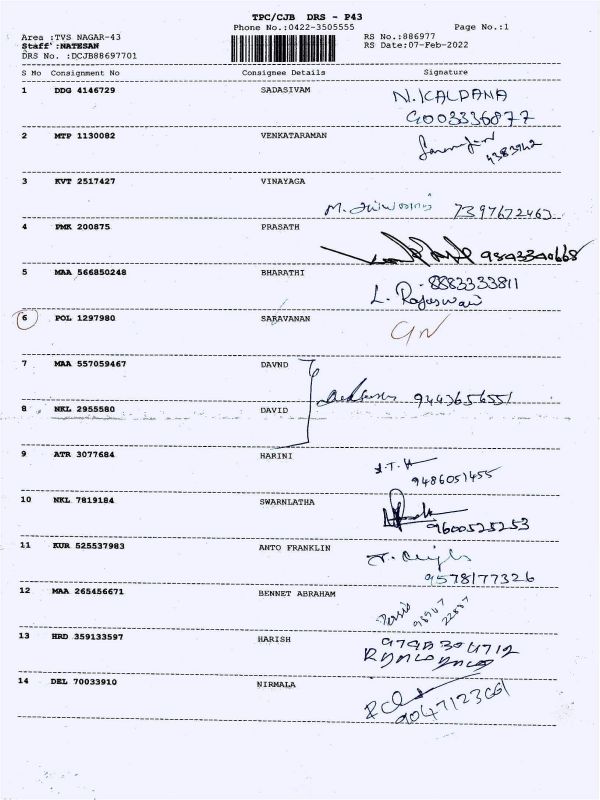 TPC/CJB DRS - P43
Phone No.:0422-3505555 Page No.:1
Area :TVS NAGAR-43 RS No.:886977
Staff :NATESAN RS Date:07-Feb-2022
DRS No. :DCJB88697701
S No Consignment No Consignee Details Signature
1 DDG 4146729 SADASIVAM N. KALPANA
9003336877
2 MTP 1130082 VENKATARAMAN
3 KVT 2517427 VINAYAGA
7397672463
4 PMK 200875 PRASATH
9843340668
5 MAA 566850248 BHARATHI 8883333811
L. Rajeswari
6 POL 1297980 SARAVANAN
7 MAA 557059467 DAVND
9443656551
8 NKL 2955580 DAVID
9 ATR 3077684 HARINI
9486051455
10 NKL 7819184 SWARNLATHA
9600525253
11 KUR 525537983 ANTO FRANKLIN
9578177326
12 MAA 265456671 BENNET ABRAHAM
13 HRD 359133597 HARISH
14 DEL 70033910 NIRMALA